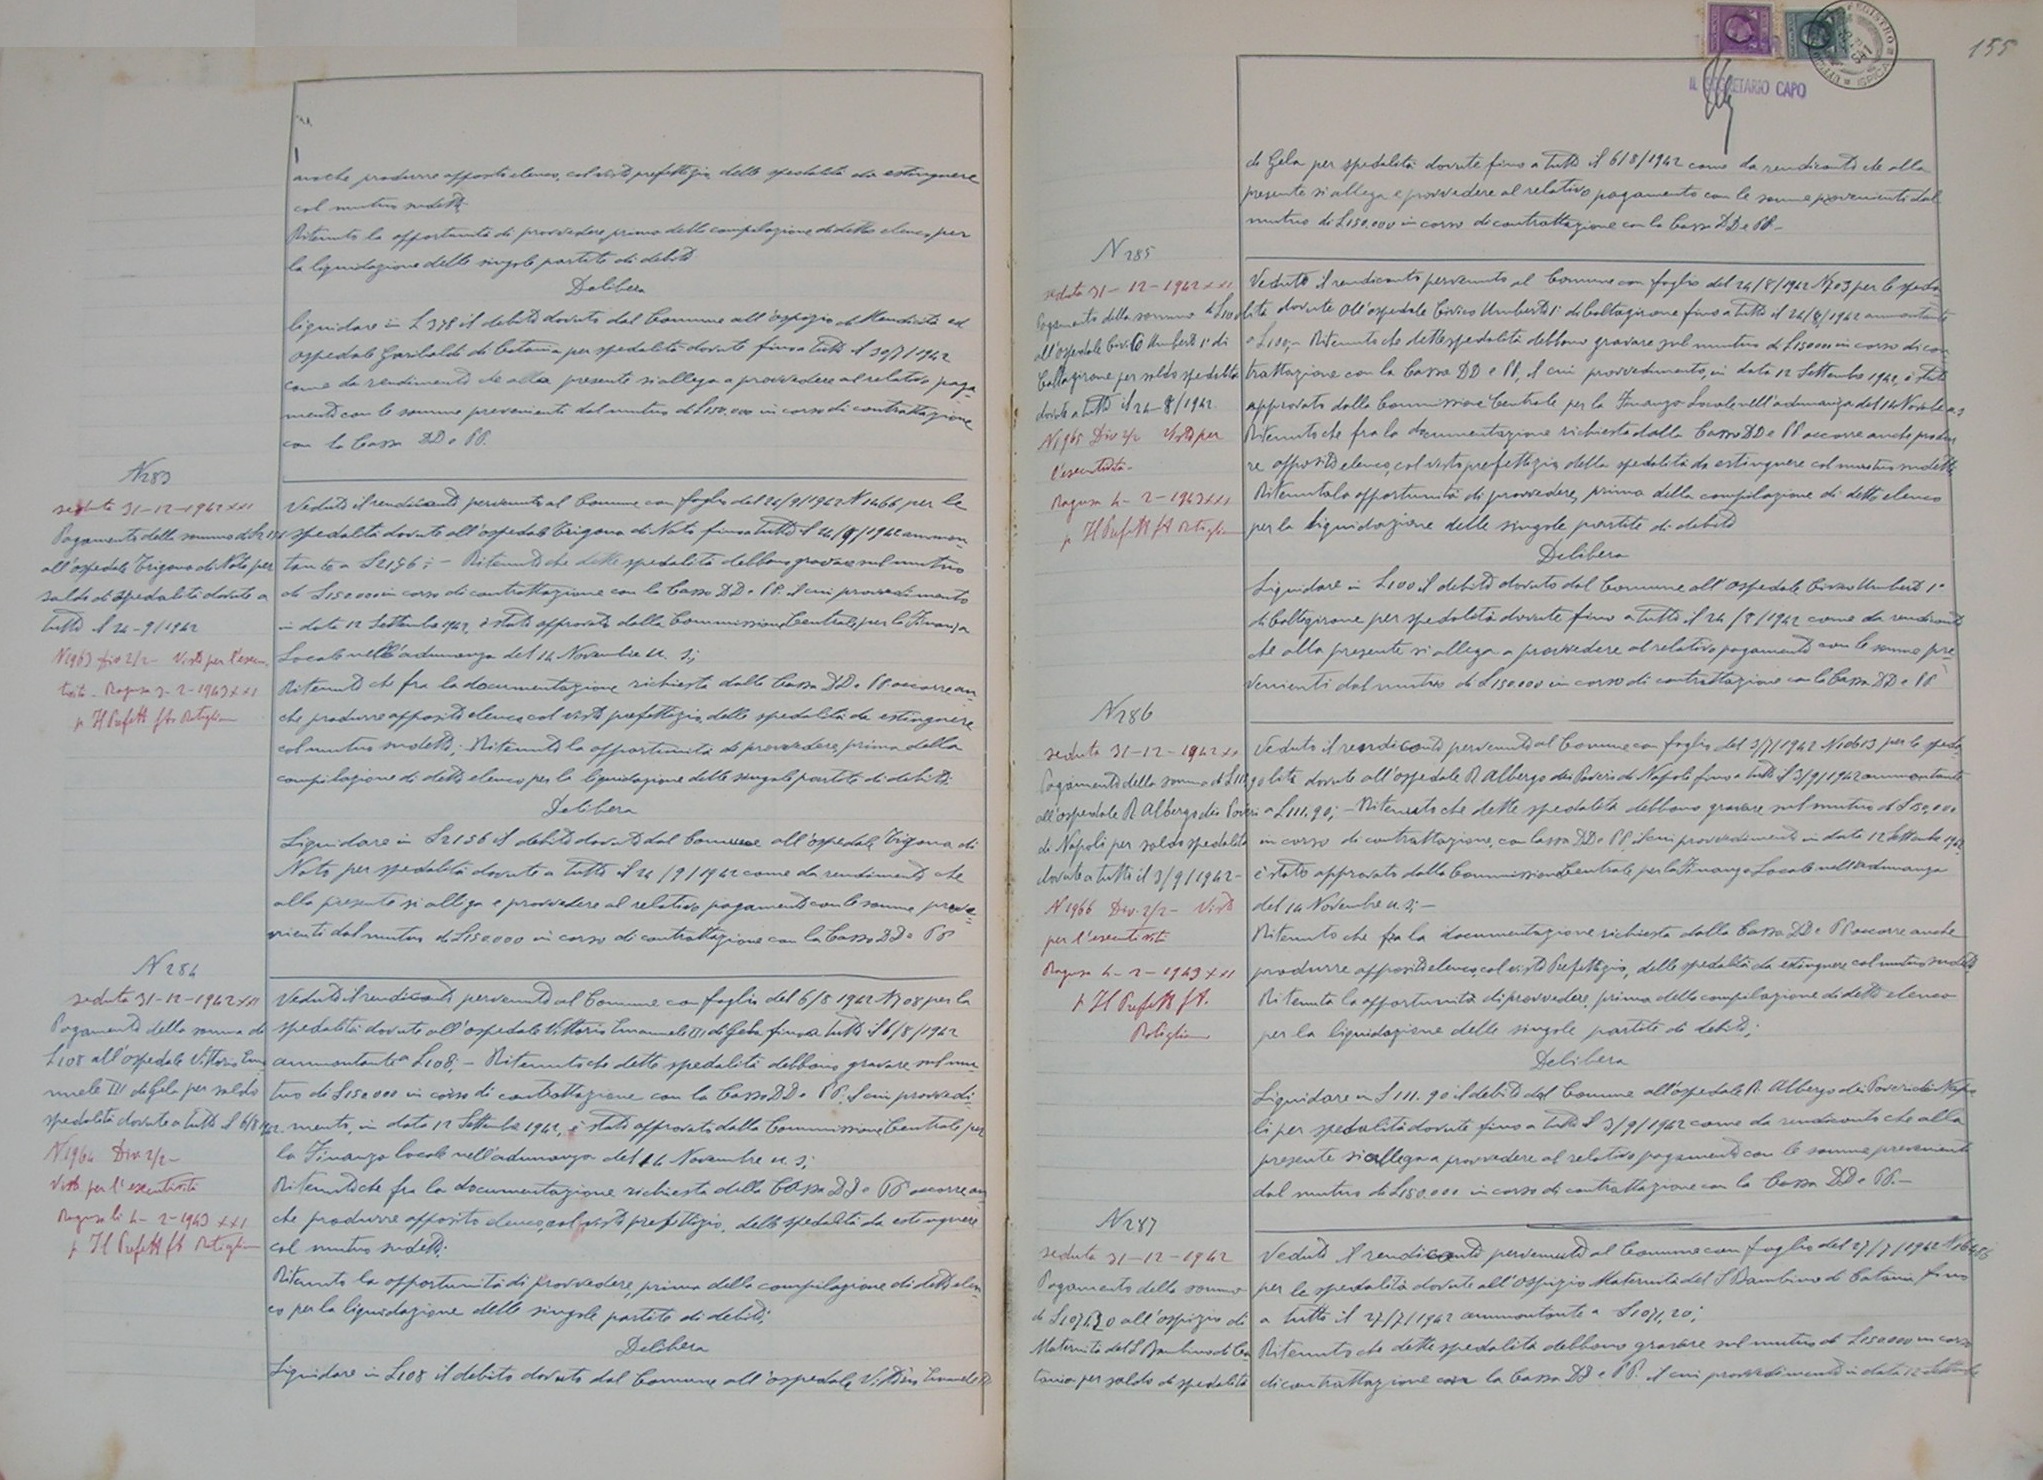 anche produrre apposito elenco, col visto prefettizio delle spedalità da estinguere
col mutuo sudetto
Ritenuto la opportunità di provvedere, prima della compilazione di detto elenco, per
la liquidazione delle singole partite di debito
Delibera
liquidare in L 378 il debito dovuto dal Comune all'ospizio di Mendicità ed
ospedale Garibaldi di Catania per spedalità dovute fino a tutto il 30/7/1942
come da rendimento che alla presente si allega a provvedere al relativo paga-
mento con le somme provenienti dal mutuo di L 150.000 in corso di contrattazione
con la Cassa DD e PP.
N 283
seduta 31-12-1942 XXI
Pagamento della somma di L 2156
all'ospedale Trigona di Noto per
saldo di spedalità dovute a
tutto il 24-9/1942
N 1963 Div 2/2 - Visto per l'esecu-
tività - Ragusa 3-2-1943 XXI
p Il Prefetto fto
Veduto il rendiconto pervenuto al Comune con foglio del 24/9/1942 N 1466 per le
spedalità dovute all'ospedale Trigona di Noto fino a tutto il 24/9/1942 ammon-
tante a L 2156; - Ritenuto che dette spedalità debbono gravare sul mutuo
di L 150.000 in corso di contrattazione con la Cassa DD e PP. il cui provvedimento
in data 12 Settembre 1942, è stato approvato dalla Commissione Centrale per la Finanza
Locale nell'adunanza del 14 Novembre u. s.;
Ritenuto che fra la documentazione richiesta dalla Cassa DD e PP occorre an-
che produrre apposito elenco col visto prefettizio delle spedalità da estinguere
col mutuo sudetto; Ritenuto la opportunità di provvedere, prima della
compilazione di detto elenco per la liquidazione delle singole partite di debito:
Delibera
Liquidare in L 2156 il debito dovuto dal Comune all'ospedale Trigona di
Noto per spedalità dovute a tutto il 24/9/1942 come da rendimento che
alla presente si allega e provvedere al relativo pagamento con le somme prove-
nienti dal mutuo di L 150.000 in corso di contrattazione con la Cassa DD e PP
N 284
seduta 31-12-1942 XXI
Pagamento della somma di
L 108 all'ospedale Vittorio Ema
nuele III di Gela per saldo
spedalità dovute a tutto il 6/8 1942
N 1964 Div. 2/2 -
Visto per l'esecutività
Ragusa li 4-2-1943 XXI
p Il Prefetto fto
Veduto il rendiconto pervenuto al Comune con foglio del 6/8 1942 N 708 per la
spedalità dovute all'ospedale Vittorio Emanuele III di Gela fino a tutto il 6/8/1942
ammontante a L 108; - Ritenuto che dette spedalità debbono gravare sul mu-
tuo di L 150.000 in corso di contrattazione con la Cassa DD e PP. il cui provvedi-
mento, in data 12 Settembre 1942, è stato approvato dalla Commissione Centrale per
la Finanza locale nell'adunanza del 14 Novembre u. s.;
Ritenuto che fra la documentazione richiesta dalla Cassa DD e PP occorre an
che produrre apposito elenco, col visto prefettizio, delle spedalità da estinguere
col mutuo sudetto.
Ritenuto la opportunità di provvedere, prima della compilazione di detto elen-
co per la liquidazione delle singole partite di debito;
Delibera
Liquidare in L 108 il debito dovuto dal Comune all'ospedale Vittorio Emanuele III
155
IL SEGRETARIO CAPO
di Gela per spedalità dovute fino a tutto il 6/8/1942 come da rendiconto che alla
presente si allega e provvedere al relativo pagamento con le somme provenienti dal
mutuo di L 150.000 in corso di contrattazione con la Cassa DD e PP. -
N 285
seduta 31-12-1942 XXI
Pagamento della somma di L 100
all'ospedale Civico Umberto I° di
Caltagirone per saldo spedalità
dovute a tutto il 24-8/1942
N 1965 Div 2/2 Visto per
l'esecutività -
Ragusa 4-2-1943 XXI
p Il Prefetto fto
Veduto il rendiconto pervenuto al Comune con foglio del 24/8/1942 N 703 per le speda-
lità dovute all'ospedale Civico Umberto I° di Caltagirone fino a tutto il 24/8/1942 ammontante
a L 100; - Ritenuto che dette spedalità debbono gravare sul mutuo di L 150.000 in corso di con
trattazione con la Cassa DD e PP, il cui provvedimento, in data 12 Settembre 1942, è stato
approvato dalla Commissione Centrale per la Finanza Locale nell'adunanza del 14 Novembre u.s
Ritenuto che fra la documentazione richiesta dalla Cassa DD e PP occorre anche produr
re apposito elenco, col visto prefettizio, della spedalità da estinguere col mutuo sudetto
Ritenuta la opportunità di provvedere, prima della compilazione di detto elenco
per la liquidazione delle singole partite di debito
Delibera
Liquidare in L 100 il debito dovuto dal Comune all'ospedale Civico Umberto I°
di Caltagirone per spedalità dovute fino a tutto il 24/8/1942 come da rendiconto
che alla presente si allega a provvedere al relativo pagamento con le somme pro
venienti dal mutuo di L 150.000 in corso di contrattazione con la Cassa DD e PP
N 286
seduta 31-12-1942 XXI
Pagamento della somma di L 111.90
all'ospedale R Albergo dei Poveri
di Napoli per saldo spedalità
dovute a tutto il 3/9/1942 -
N 1966 Div. 2/2 - Visto
per l'esecutività
Ragusa 4-2-1943 XXI
p Il Prefetto fto.
Veduto il rendiconto pervenuto al Comune con foglio del 3/7/1942 N 10613 per le speda
lità dovute all'ospedale R Albergo dei Poveri di Napoli fino a tutto il 3/9/1942 ammontante
a L 111,90; - Ritenuto che dette spedalità debbono gravare sul mutuo di L 150,000
in corso di contrattazione, con Cassa DD e PP, il cui provvedimento in data 12 Settembre 1942
è stato approvato dalla Commissione Centrale per la Finanza Locale nell'adunanza
del 14 Novembre u. s; -
Ritenuto che fra la documentazione richiesta dalla Cassa DD e PP occorre anche
produrre apposito elenco, col visto Prefettizio, delle spedalità da estinguere col mutuo sudetto
Ritenuta la opportunità di provvedere, prima della compilazione di detto elenco
per la liquidazione delle singole partite di debito;
Delibera
Liquidare in L 111.90 il debito dal Comune all'ospedale R. Albergo dei Poveri di Napo
li per spedalità dovute fino a tutto il 3/9/1942 come da rendiconto che alla
presente si allega a provvedere al relativo pagamento con le somme provenienti
dal mutuo di L 150.000 in corso di contrattazione con la Cassa DD e PP. -
N 287
seduta 31-12-1942
Pagamento della somma
di L 1071,20 all'ospizio di
Maternità del S Bambino di Ca
tania per saldo di spedalità
Veduto il rendiconto pervenuto al Comune con foglio del 27/7/1942
per le spedalità dovute all'Ospizio Maternità del S Bambino di Catania, fino
a tutto il 27/7/1942 ammontante a L 1071,20;
Ritenuto che dette spedalità debbono gravare sul mutuo di L 150000 in corso
di contrattazione con la Cassa DD e PP. il cui provvedimento in data 12 Settembre